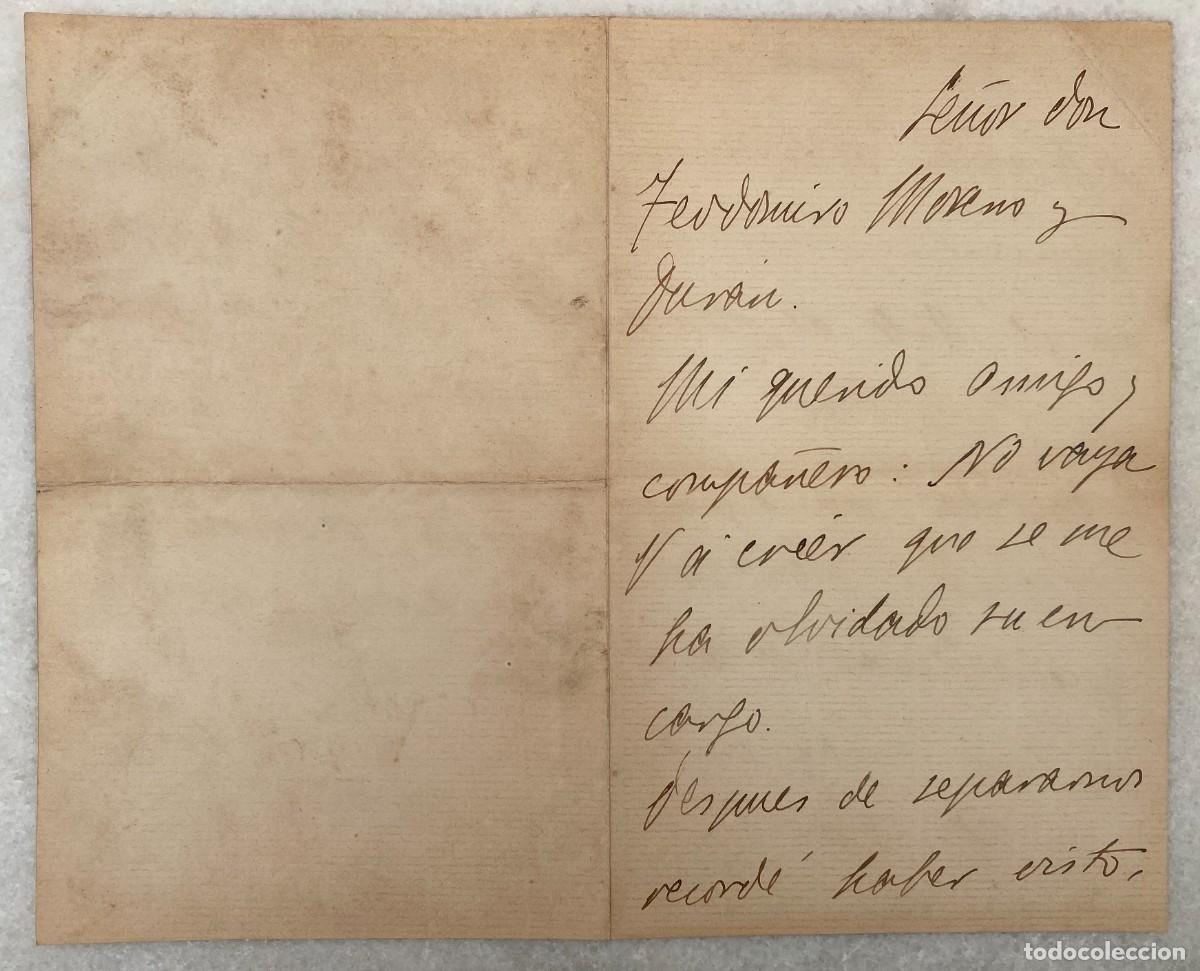 Señor don
Teodomiro Moreno y
Durán.
Mi querido amigo y
compañero: No vaya
V á créer que se me
ha olvidado su en
cargo.
Despues de separarnos
recordé haber visto,
todocoleccion